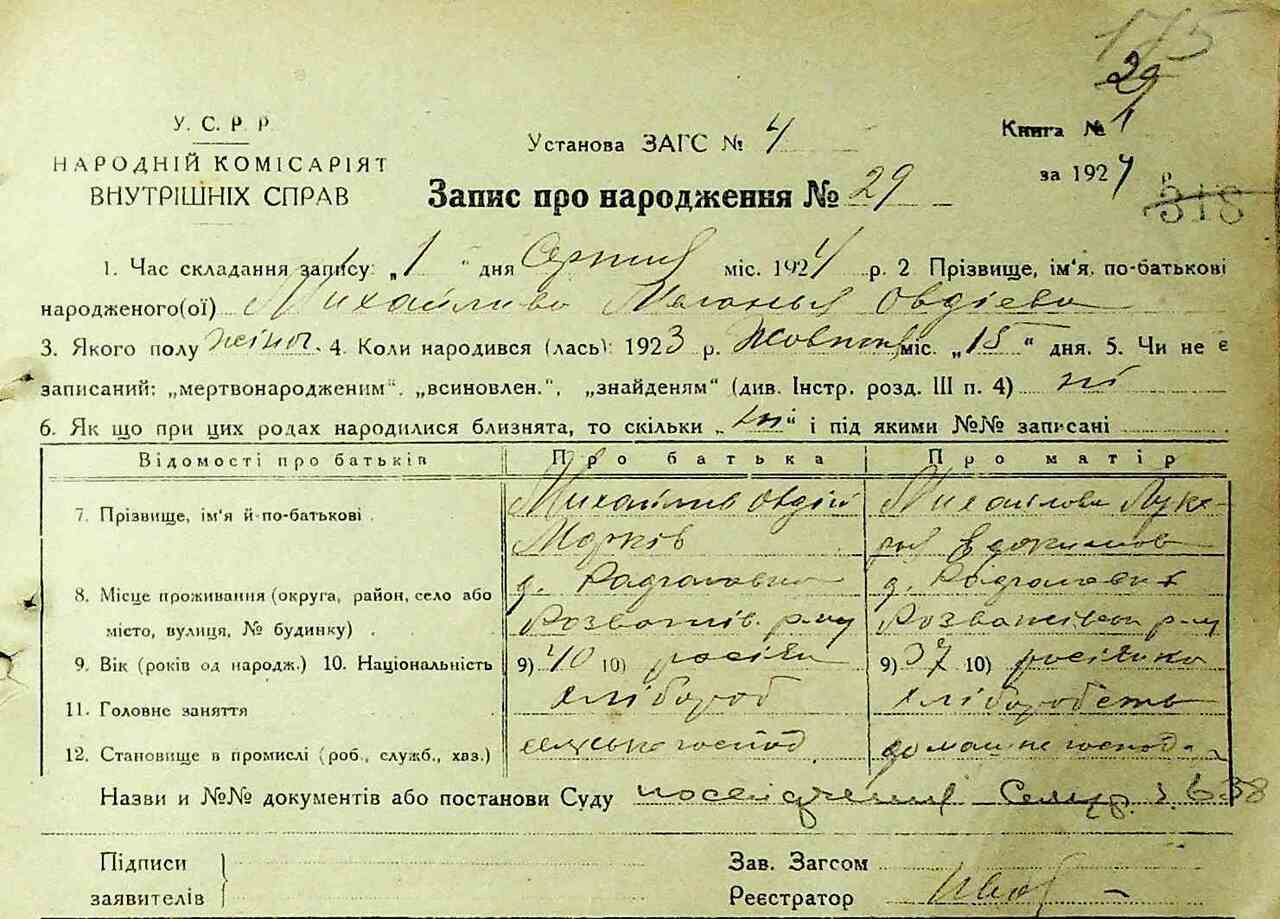 175
29
У. С. Р. Р.
НАРОДНІЙ КОМІСАРІЯТ
ВНУТРІШНІХ СПРАВ
Установа ЗАГС № 4
Книга № 1
за 1924 р.
318
Запис про народження № 29
1. Час складання запису: „1“ дня Серпня міс. 1924 р. 2 Прізвище, ім'я, по-батькові
народженого(ої) Михайлива Овдієва
3. Якого полу жіноч. 4. Коли народився (лась): 1923 р. Жовтня міс. „15“ дня. 5. Чи не є
записаний: „мертвонародженим“, „всиновлен.“, „знайденям“ (див. Інстр. розд. III п. 4) ні
6. Як що при цих родах народилися близнята, то скільки „ні“ і під якими №№ записані
Відомості про батьків Про батька Про матір
7. Прізвище, ім'я й по-батькові Михайлив Овдій Михайлова Луке-
Марків
8. Місце проживання (округа, район, село або д. д.
місто, вулиця, № будинку) Розважів. р-ну р-ну
9. Вік (років од народж.) 10. Національність 9) 40 10) 9) 37 10) росіянка
11. Головне заняття хлібороб хліборобств
12. Становище в промислі (роб., служб., хвз.) сільське господ домашне господ
Назви и №№ документів або постанови Суду посвідчення
Підписи
заявителів
Зав. Загсом
Реєстратор